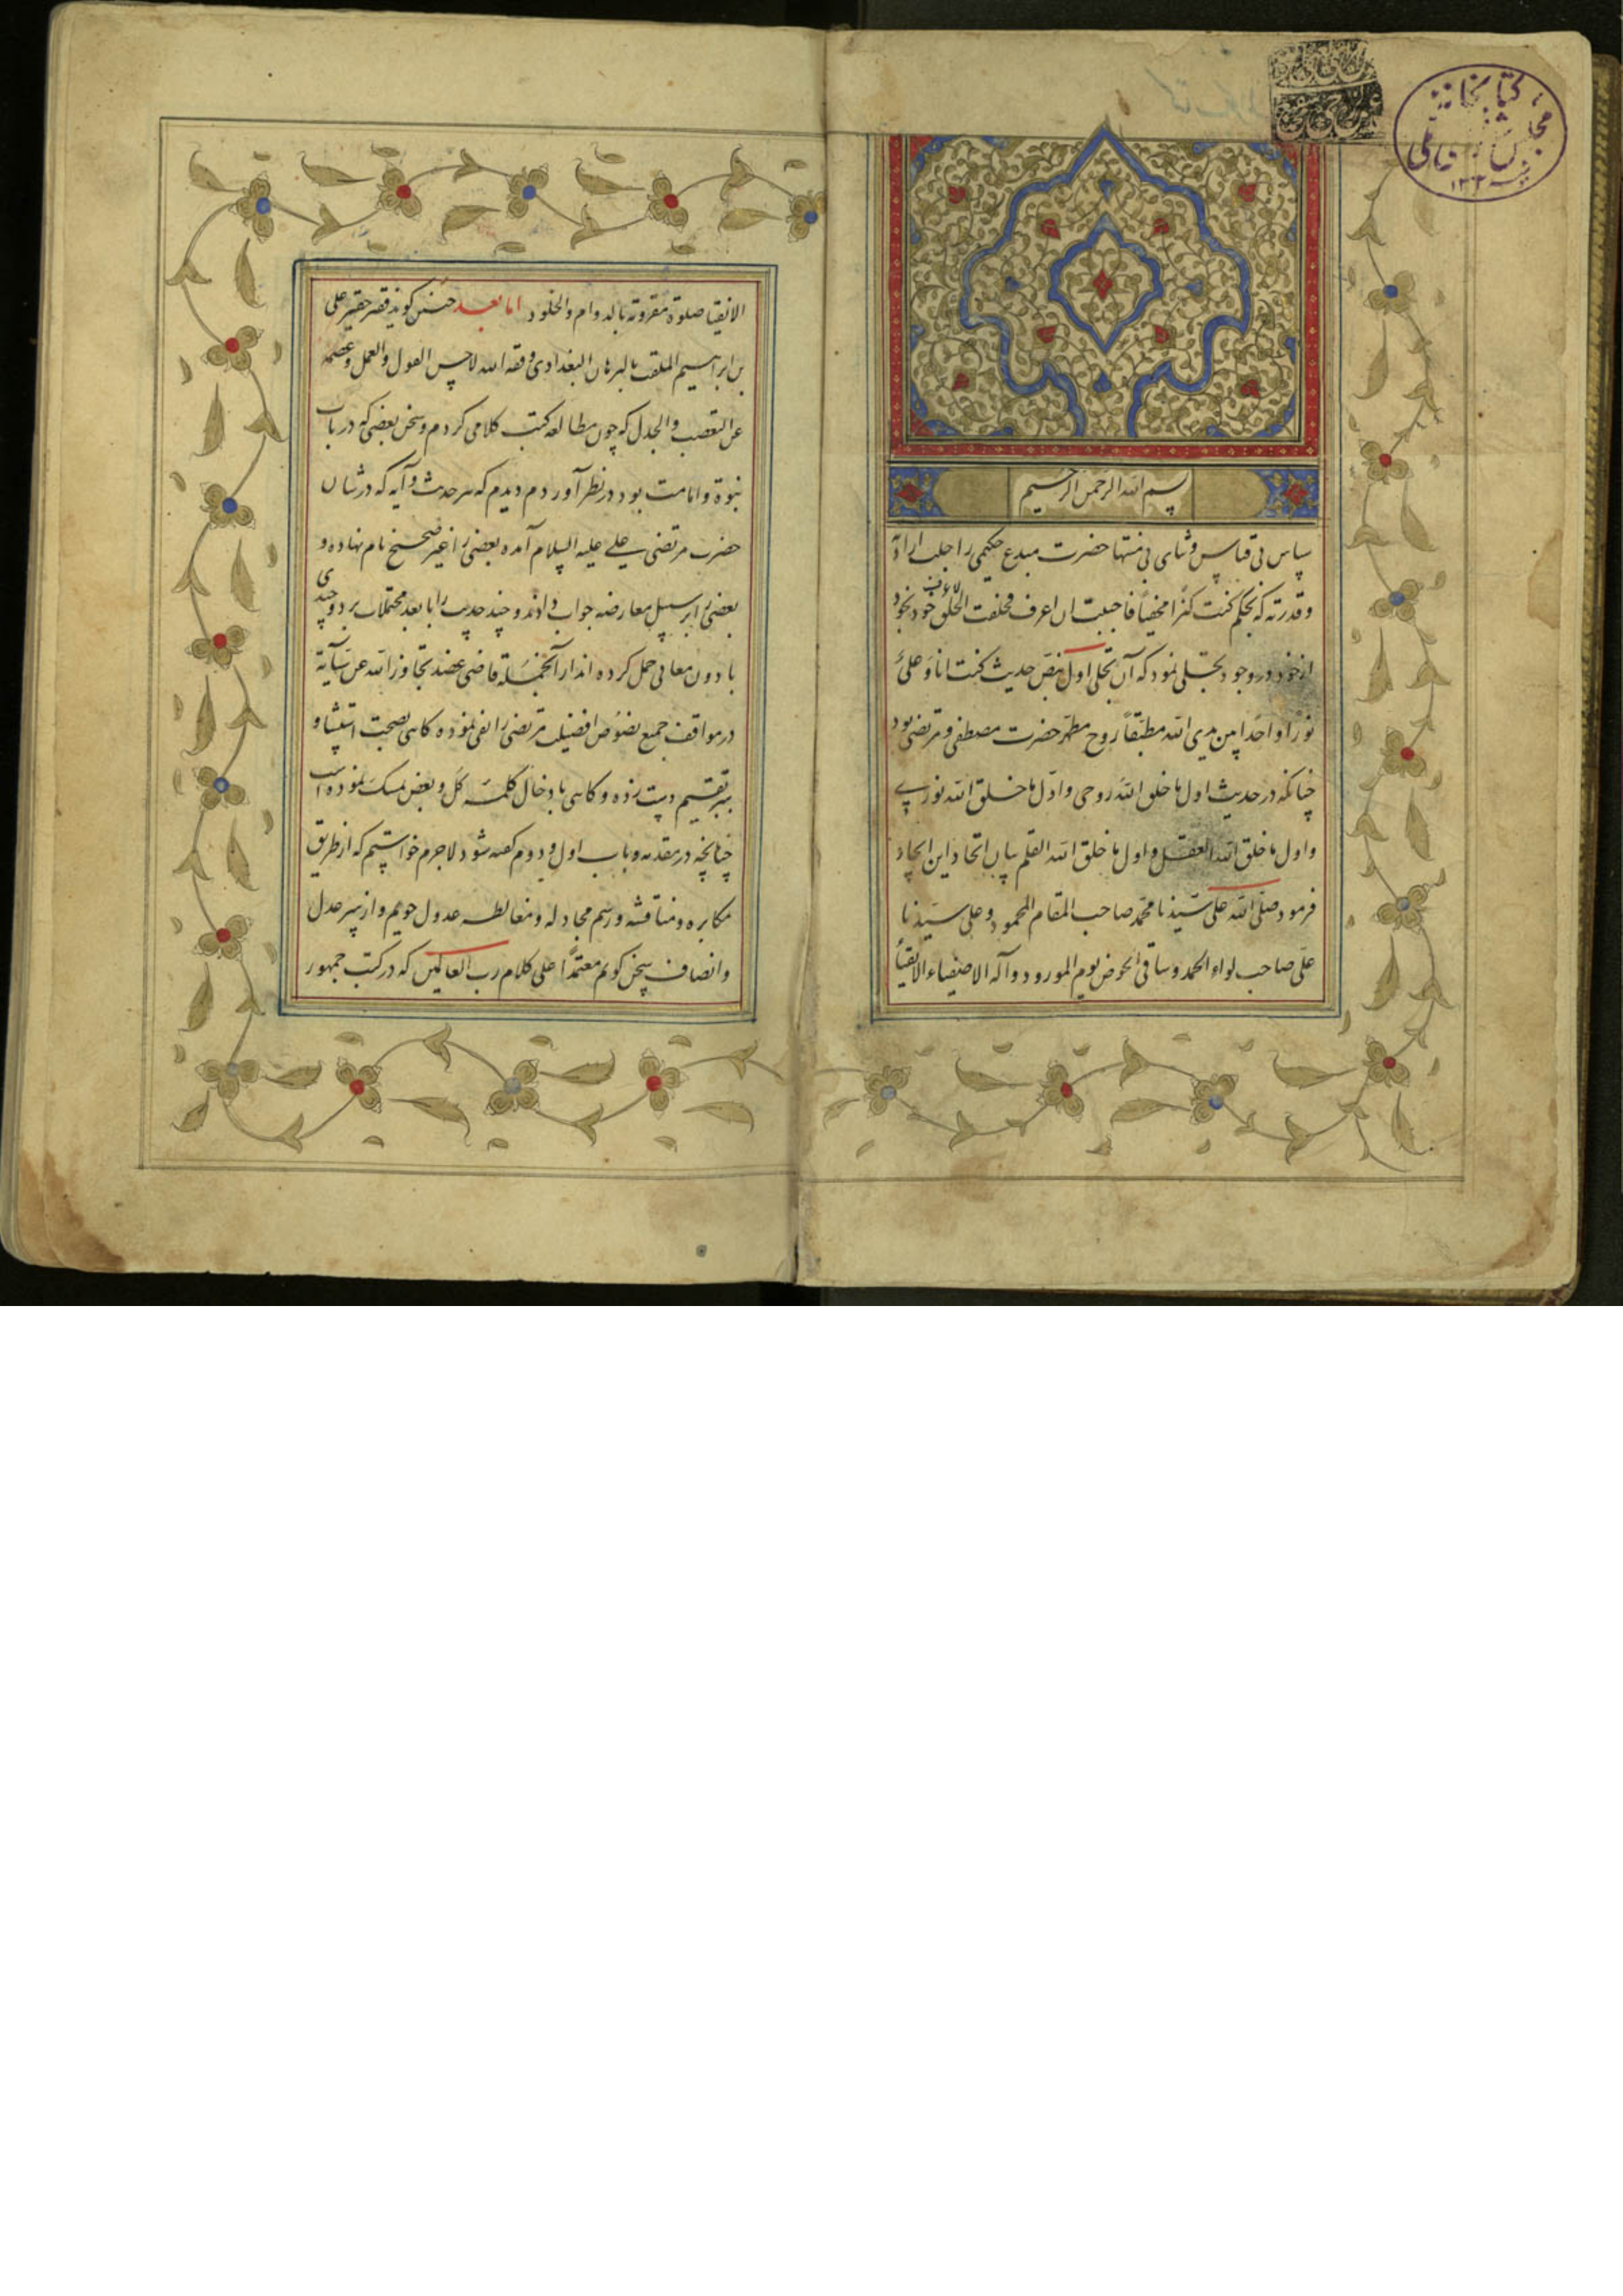 کتابخانه
مجلس شورای ملی
۱۳۰۲
بسم الله الرحمن الرحیم
سپاس بی قیاس و ثنای بی منتها حضرت مبدع حکیمی را جلت ارادته
و قدرته که بحکم کنت کنزا مخفیا فاحببت ان اعرف فخلقت الخلق لاعرف خود بخود
از خود در وجود تجلی نمود که آن تجلی اول بنص حدیث کنت انا و علی
نورا واحدا بین یدی الله مطبقا روح مطهر حضرت مصطفی و مرتضی بود
چنانکه در حدیث اول ما خلق الله روحی و اول ما خلق الله نوری
و اول ما خلق الله العقل و اول ما خلق الله القلم بیان اتحاد این ایجاد
فرمود صلی الله علی سیدنا محمد صاحب المقام المحمود و علی سیدنا
علی صاحب لواء الحمد و ساقی الحوض یوم المورود و آله الاصفیاء الاتقیاء
الاتقیا صلوة مقرونة بالدوام والخلود اما بعد چنین کوید فقیر حقیر علی
بن ابراهیم الملقب بالبرهان البغدادی وفقه الله لاحسن القول والعمل وعصمه
عن التعصب والجدل که چون مطالعه کتب کلامی کردم و سخن بعضی که در باب
نبوة و امامت بود در نظر آوردم دیدم که هر حدیث و آیه که در شان
حضرت مرتضی علی علیه السلام آمده بعضی را غیر صحیح نام نهاده و
بعضی را بر سبیل معارضه جواب داده و چند حدیث را بابعد محتملات برده و چندی
بادون معانی حمل کرده اند از آنجمله قاضی عضد تجاوز الله عن سیآته
در مواقف جمیع نصوص افضیلت مرتضی را نفی نموده کاهی بصحت استثنا و
تقسیم دست زده و کاهی بادخال کلمه کل و بعض تمسک نموده است
چنانچه در مقدمه و باب اول و دوم گفته شود لاجرم خواستیم که از طریق
مکابره و مناقشه و رسم مجادله و مغالطه عدول جویم و از سر عدل
و انصاف سخن کویم معتمدا علی کلام رب العالمین که در کتب جمهور